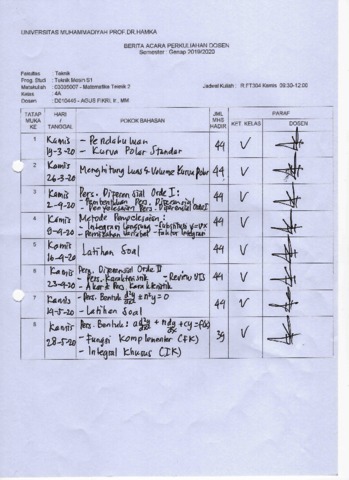 UNIVERSITAS MUHAMMADIYAH PROF.DR.HAMKA
BERITA ACARA PERKULIAHAN DOSEN
Semester : Genap 2019/2020
Fakultas : Teknik
Prog. Studi : Teknik Mesin S1
Matakuliah : 03035007 - Matematika Teknik 2
Jadwal Kuliah : R.FT304 Kamis 09:30-12:00
Kelas : 4A
Dosen : D010445 - AGUS FIKRI, Ir., MM
TATAP MUKA KE HARI / TANGGAL POKOK BAHASAN JML MHS HADIR KET. KELAS PARAF DOSEN
1 Kamis 19-3-20 - Pendahuluan 44 V
- Kurva Polar Standar
2 Kamis 26-3-20 Menghitung Luas & Volume Kurva Polar 44 V
3 Kamis 2-4-20 Pers. Diferensial Orde I : 44 V
- Pembentukan Pers. Diferensial
- Penyelesaian Pers. Diferensial Orde I
4 Kamis 9-4-20 Metode Penyelesaian : 44 V
- Integran Langsung - Substitusi y=vx
- Pemisahan Variabel - Faktor Integran
5 Kamis 16-4-20 Latihan Soal 44 V
6 Kamis 23-4-20 Pers. Diferensial Orde II 44 V
- Pers. Karakteristik - Review UTS
- Akar² Pers. Karakteristik
7 Kamis 14-5-20 - Pers. Bentuk d²y/dx² ± n²y = 0 44 V
- Latihan Soal
8 Kamis 28-5-20 Pers. Bentuk : a d²y/dx² + b dy/dx + cy = f(x) 39 V
- Fungsi Komplementer (FK)
- Integral Khusus (IK)